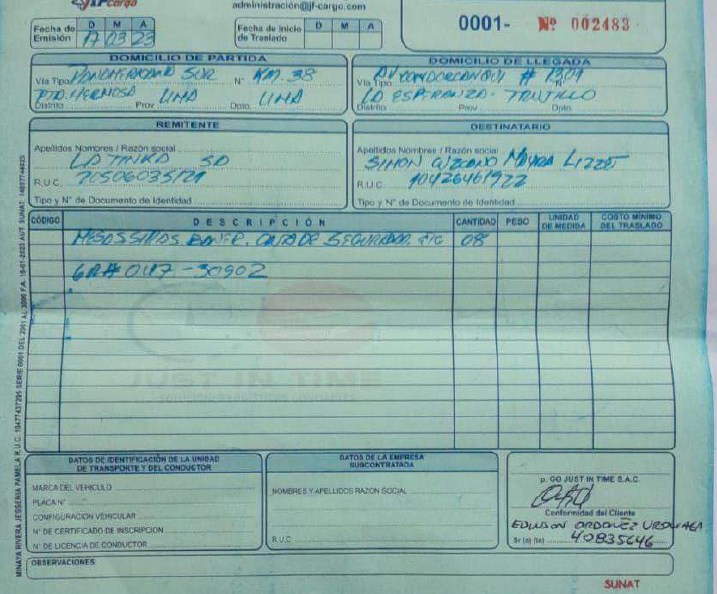 J&F Cargo
administración@jf-cargo.com
0001- Nº 002483
Fecha de Emisión D M A 17 03 23
Fecha de Inicio de Traslado D M A
DOMICILIO DE PARTIDA
Vía Tipo PANAMERICANA SUR N° KM. 38
PTO. HERMOSA LIMA LIMA
Distrito Prov. Dpto.
DOMICILIO DE LLEGADA
Vía Tipo AV CONDORCANQUI # 1309 N°
LA ESPERANZA - TRUJILLO
Distrito Prov. Dpto.
REMITENTE
Apellidos Nombres / Razón social
LA TINKA SA
R.U.C. 20506035121
Tipo y N° de Documento de Identidad
DESTINATARIO
Apellidos Nombres / Razón social
SIMON MAYRA LIZZET
R.U.C. 10426461922
Tipo y N° de Documento de Identidad
CÓDIGO DESCRIPCIÓN CANTIDAD PESO UNIDAD DE MEDIDA COSTO MÍNIMO DEL TRASLADO
MESAS SILLAS BANER, CAJA DE SEGURIDAD, ETC 08
GR# 0117 - 30902
DATOS DE IDENTIFICACIÓN DE LA UNIDAD DE TRANSPORTE Y DEL CONDUCTOR
MARCA DEL VEHÍCULO
PLACA N°
CONFIGURACIÓN VEHICULAR
N° DE CERTIFICADO DE INSCRIPCION
N° DE LICENCIA DE CONDUCTOR
DATOS DE LA EMPRESA SUBCONTRATADA
NOMBRES Y APELLIDOS RAZON SOCIAL
R.U.C.
p. GO JUST IN TIME S.A.C.
Conformidad del Cliente
EDWSON ORDOÑEZ URQUIAGA
Sr (a) (ta) 40835646
OBSERVACIONES
SUNAT
MINAYA RIVERA JESSENIA PAMELA R.U.C. 10477437295 SERIE 0001 DEL 2001 AL 3000 F.A. 19-01-2023 AUT. SUNAT